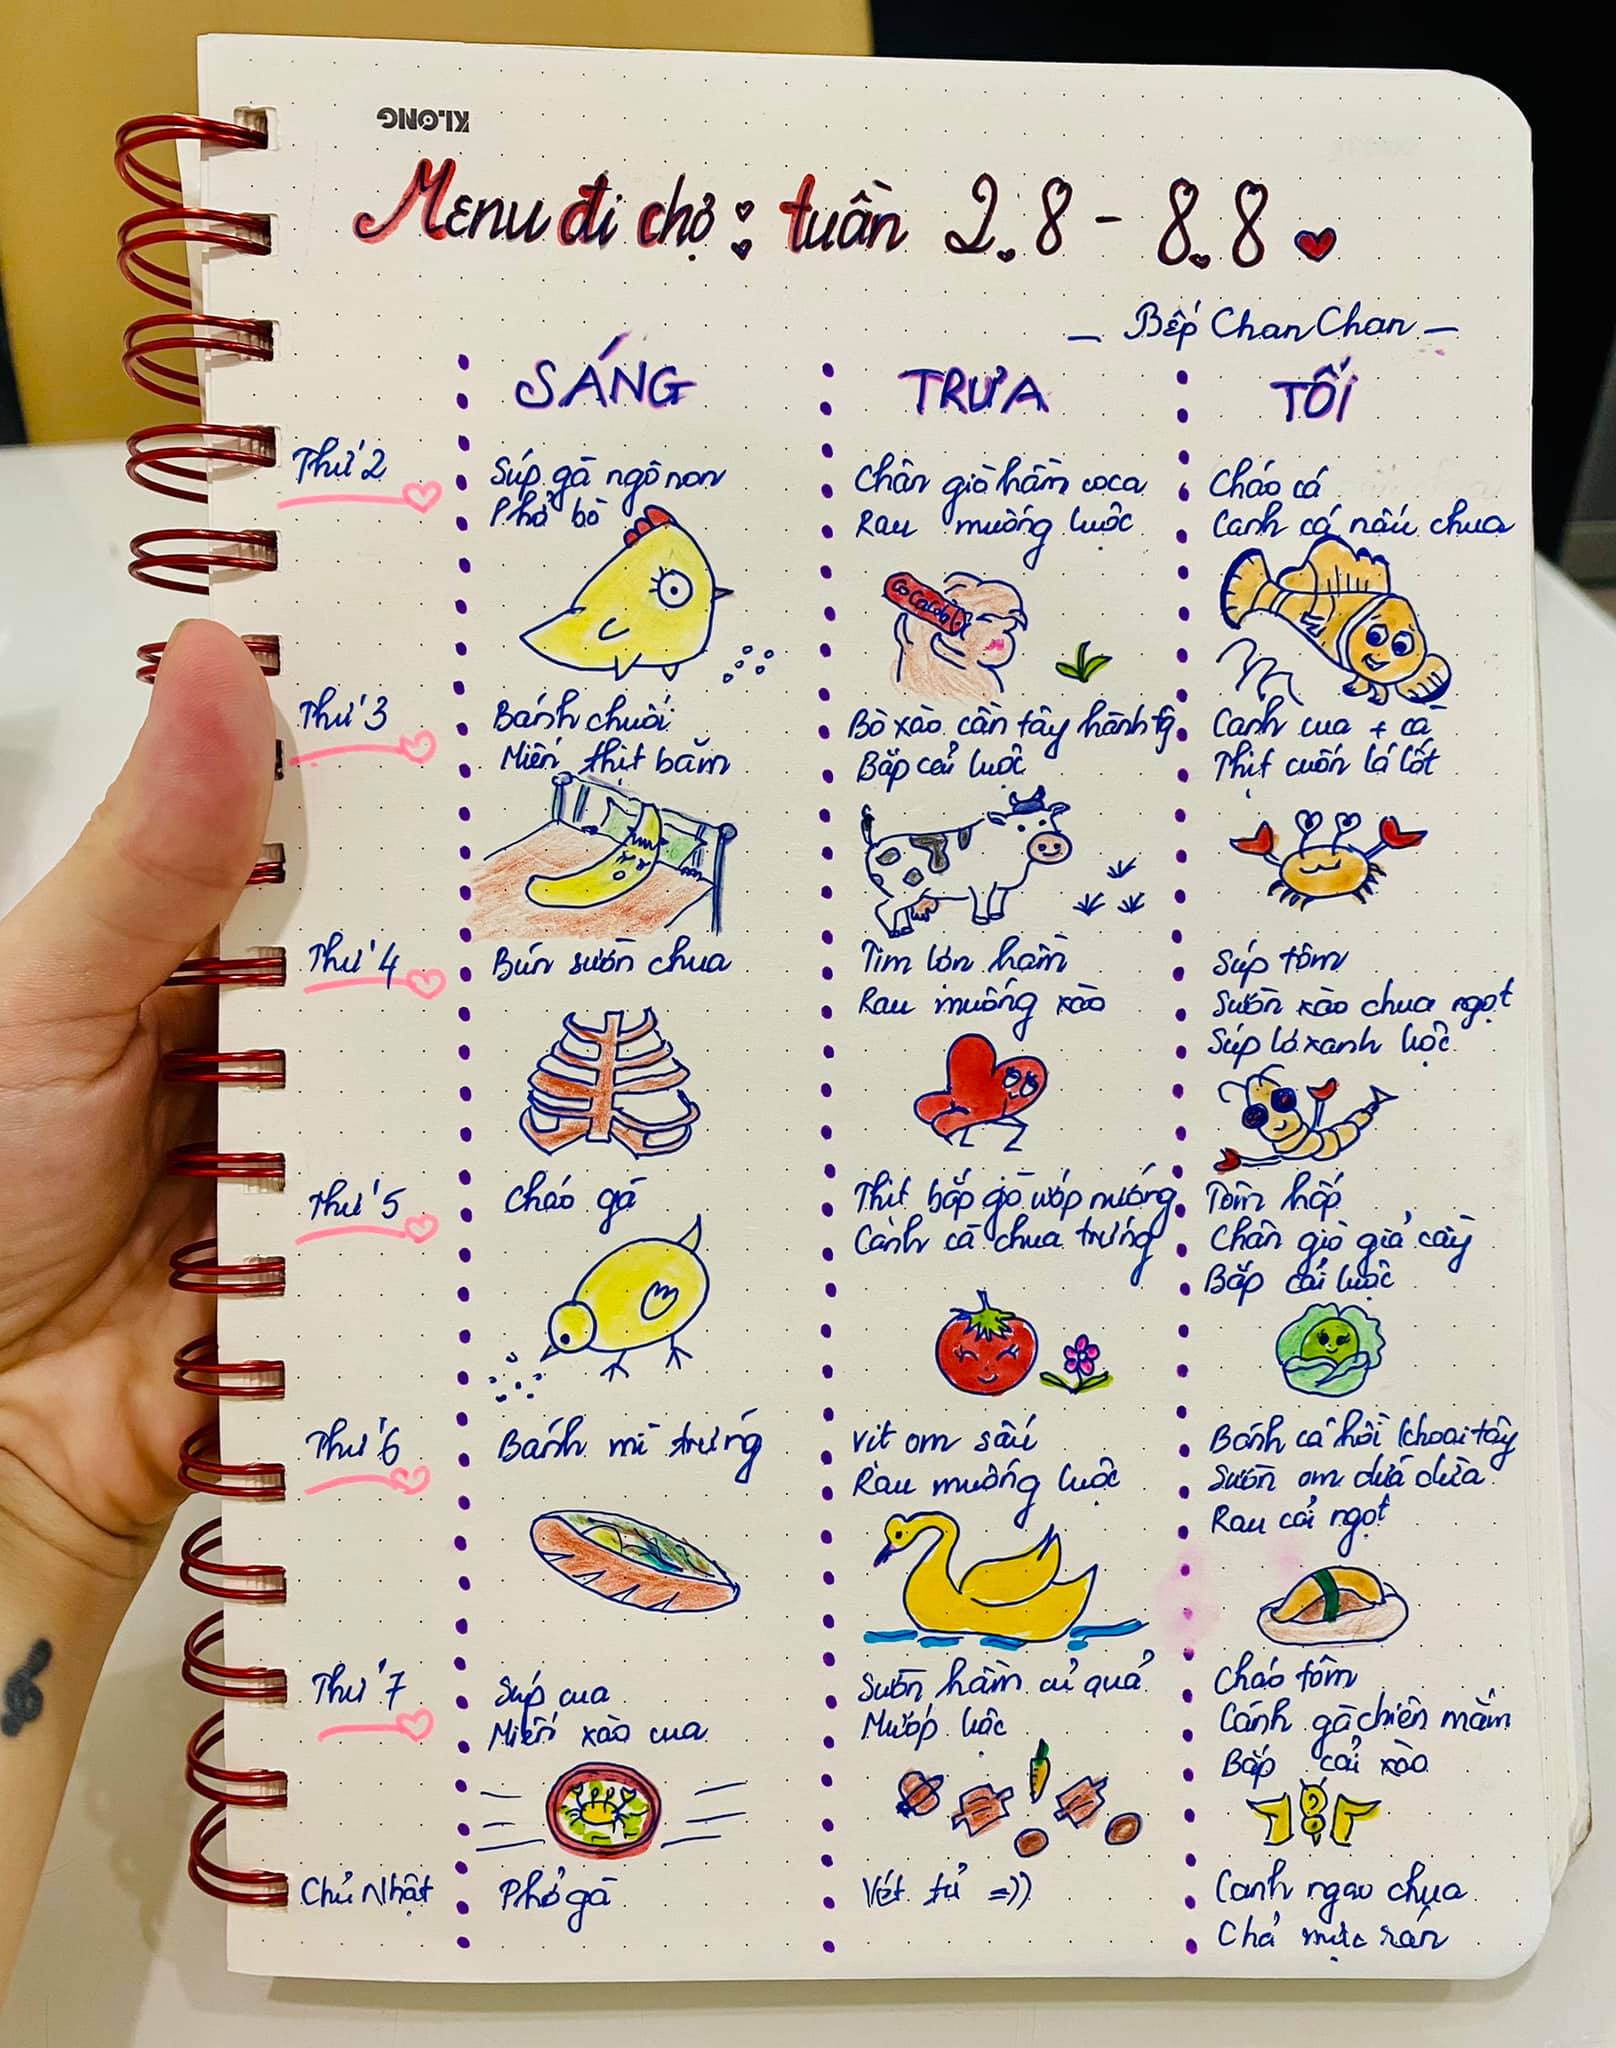 KLONG
Menu đi chợ: tuần 2.8 - 8.8
- Bếp ChanChan -
SÁNG
TRƯA
TỐI
Thứ 2
Súp gà ngô non
Phở bò
Chân giò hầm coca
Rau muống luộc
Cháo cá
Canh cá nấu chua
CoCaCola
Thứ 3
Bánh chuối
Miến thịt băm
Bò xào cần tây hành tây
Bắp cải luộc
Canh cua + cà
Thịt cuốn lá lốt
Thứ 4
Bún sườn chua
Tim lợn hầm
Rau muống xào
Súp tôm
Sườn xào chua ngọt
Súp lơ xanh luộc
Thứ 5
Cháo gà
Thịt bắp giò ướp nướng
Canh cà chua trứng
Tôm hấp
Chân giò giả cầy
Bắp cải luộc
Thứ 6
Bánh mì trứng
Vịt om sấu
Rau muống luộc
Bánh cá hồi khoai tây
Sườn om dứa dừa
Rau cải ngọt
Thứ 7
Súp cua
Miến xào cua
Sườn hầm củ quả
Mướp luộc
Cháo tôm
Cánh gà chiên mắm
Bắp cải xào
Chủ Nhật
Phở gà
Vét tủ =))
Canh ngao chua
Chả mực rán